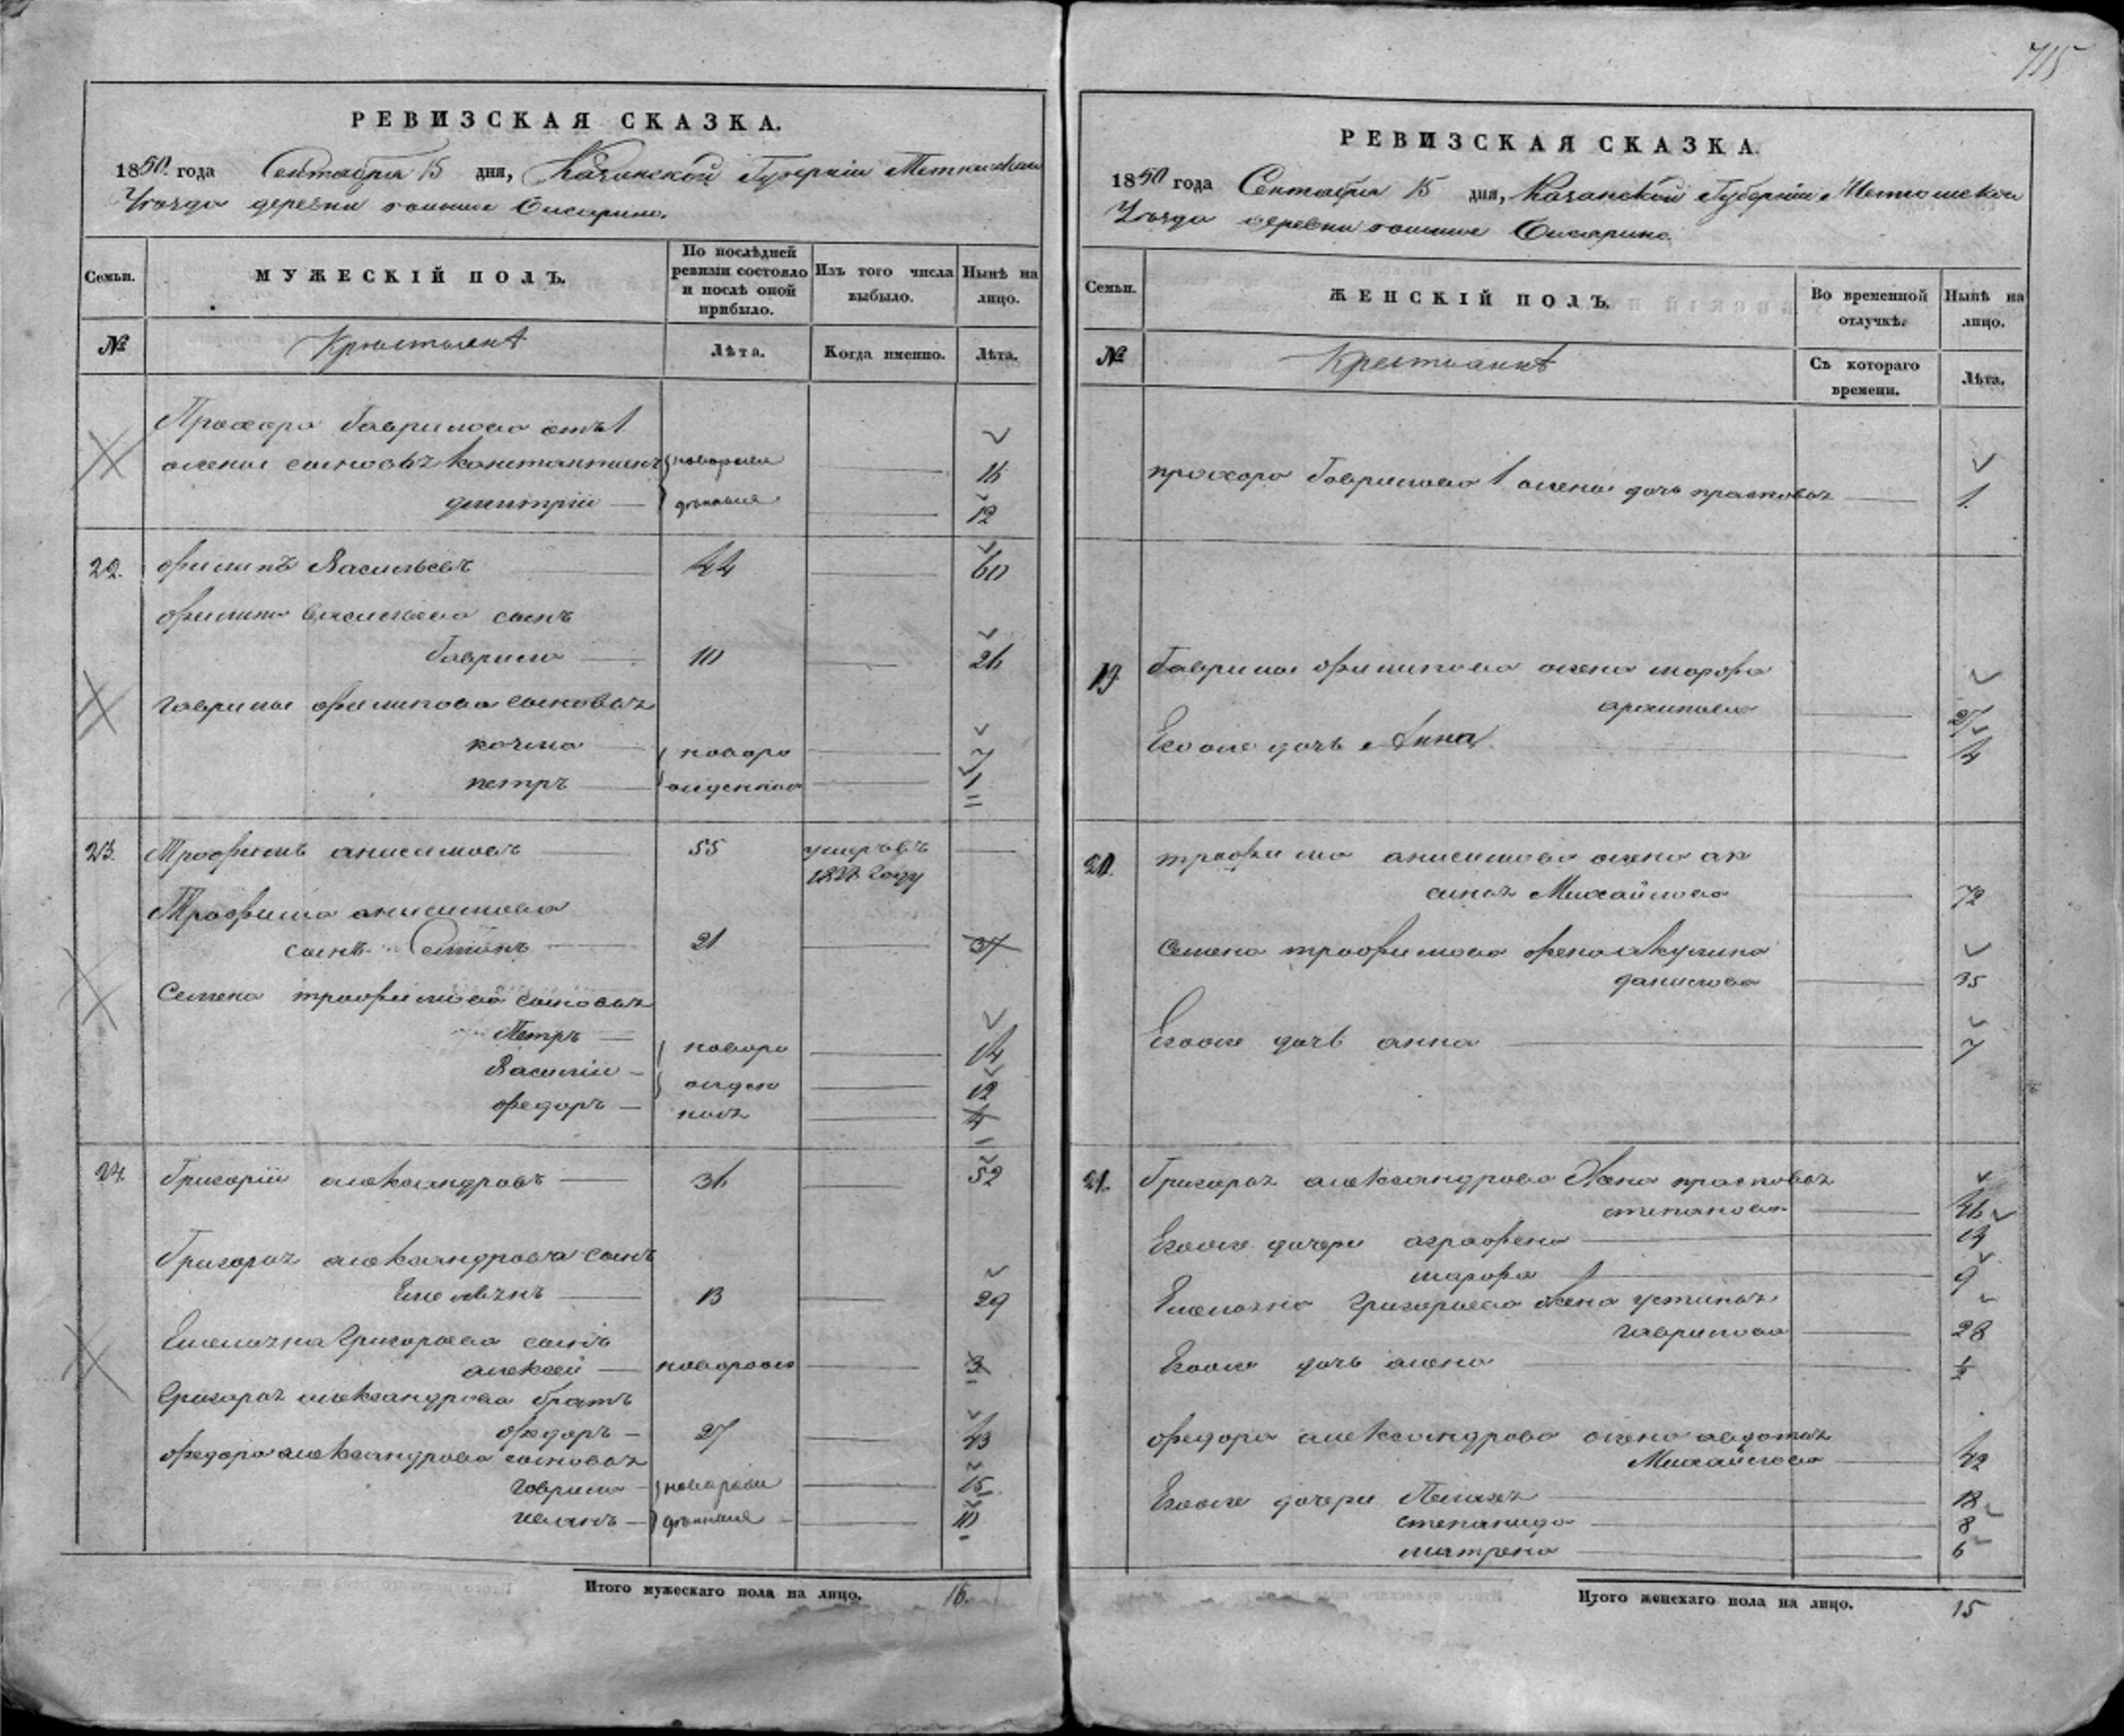 715
РЕВИЗСКАЯ СКАЗКА.
1850 года Сентября 15 дня, Казанской Губернiи
Уѣзда деревни
Семьи.
МУЖЕСКІЙ ПОЛЪ.
По послѣдней ревизіи состояло и послѣ оной прибыло.
Изъ того числа выбыло.
Нынѣ на лицо.
№
Лѣта.
Когда именно.
Лѣта.
Прохора Гаврилова отъ 1
жены сыновья Константинъ новорож 16
дмитрiй — денные 12
22. филипъ Васильевъ 44 60
филипа Васильева сынъ
Гаврила — 10 26
гаврилы филипова сыновья
козма — новоро 7
петръ — жденные 1
23. Трофимъ анисимовъ 55 умеръ въ
году
Трофима анисимова
сынъ Семенъ 21 37
Семена трофимова сыновья
Петръ — новоро 14
Василiй — жден 12
федоръ — ные 4
24. Григорiй александровъ — 36 52
Григорья александрова сынъ
Емельянъ — 13 29
Емельяна Григорьева сынъ
алексей — новорож 3
Григорья александрова братъ
федоръ — 27 43
федора александрова сыновья
гаврила — новорож 15
иванъ — денные — 10
Итого мужескаго пола на лицо. 16.
РЕВИЗСКАЯ СКАЗКА.
1850 года Сентября 15 дня, Казанской Губернiи
Уѣзда деревни
Семьи.
ЖЕНСКІЙ ПОЛЪ.
Во временной отлучкѣ.
Нынѣ на лицо.
№
Съ котораго времени.
Лѣта.
прохора Гаврилова 1 жены дочь прасковья 1.
19 Гаврилы филипова жена марфа
архипова
Его же дочь Анна 4
20. трофима анисимова жена ак
синья Михайлова 72
Семена трофимова жена акулина
данилова 35
Его же дочь анна 7
21. Григорья александрова Жена прасковья
степанова 46
Его же дочери аграфена
марфа 9
Емельяна Григорьева жена устинья
гаврилова 28
Его же дочь алена ½
федора александрова жена авдотья
Михайлова 42
Его же дочери Пелагея 18
степанида 8
матрена 6
Итого женскаго пола на лицо. 15